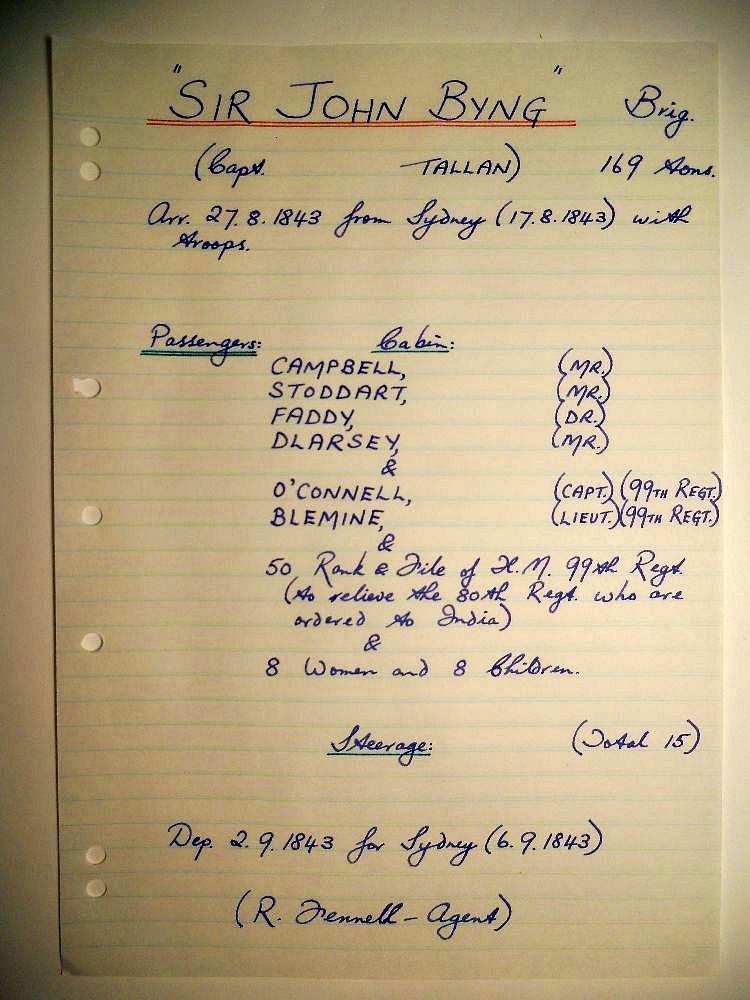 "SIR JOHN BYNG" Brig.
(Capt. TALLAN) 169 tons.
Arr. 27.8.1843 from Sydney (17.8.1843) with
troops.
Passengers: Cabin:
CAMPBELL, (MR.)
STODDART, (MR.)
FADDY, (DR.)
DLARSEY, (MR.)
&
O'CONNELL, (CAPT.) (99TH REGT.)
BLEMINE, (LIEUT.) (99TH REGT.)
&
50 Rank & File of H.M. 99th Regt.
(to relieve the 80th Regt. who are
ordered to India)
&
8 Women and 8 Children.
Steerage: (Total 15)
Dep. 2.9.1843 for Sydney (6.9.1843)
(R. Fennell - Agent)